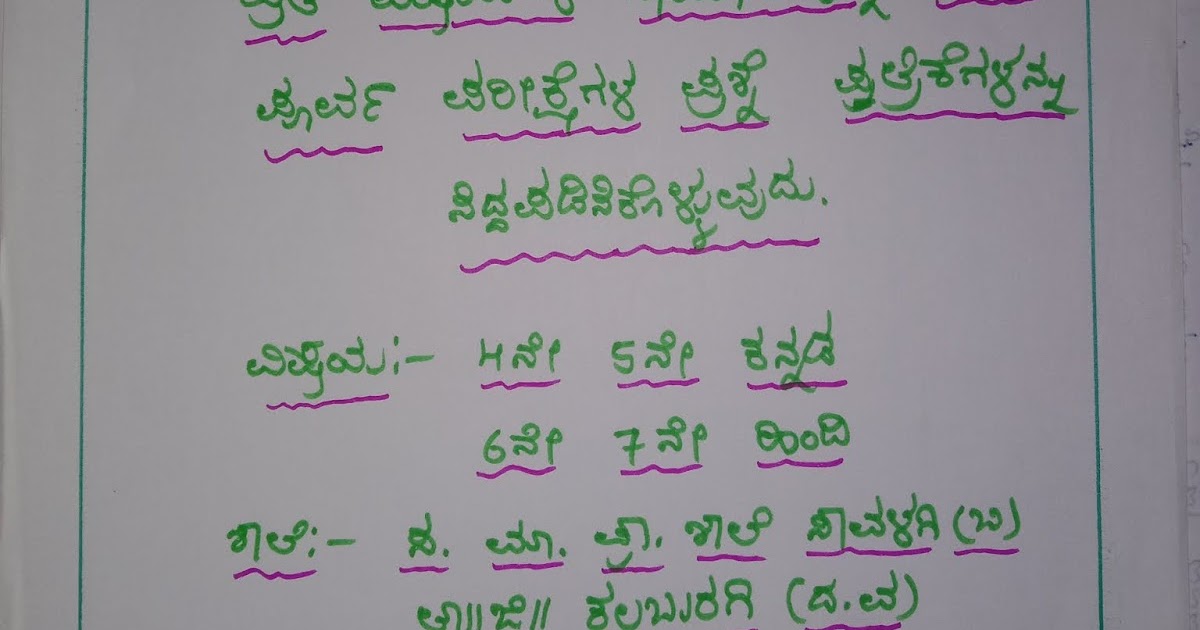 ಪ್ರತಿ
ಪೂರ್ವ ಪರೀಕ್ಷೆಗಳ ಪ್ರಶ್ನೆ ಪತ್ರಿಕೆಗಳನ್ನು
ಸಿದ್ದಪಡಿಸಿಕೊಳ್ಳುವುದು.
ವಿಷಯ:- 4ನೇ 5ನೇ ಕನ್ನಡ
6ನೇ 7ನೇ ಹಿಂದಿ
ಶಾಲೆ:- ಸ. ಮಾ. ಪ್ರಾ. ಶಾಲೆ ಸಾವಳಗಿ (ಬಿ)
ತಾ||ಜಿ|| ಕಲಬುರಗಿ (ದ.ವ)